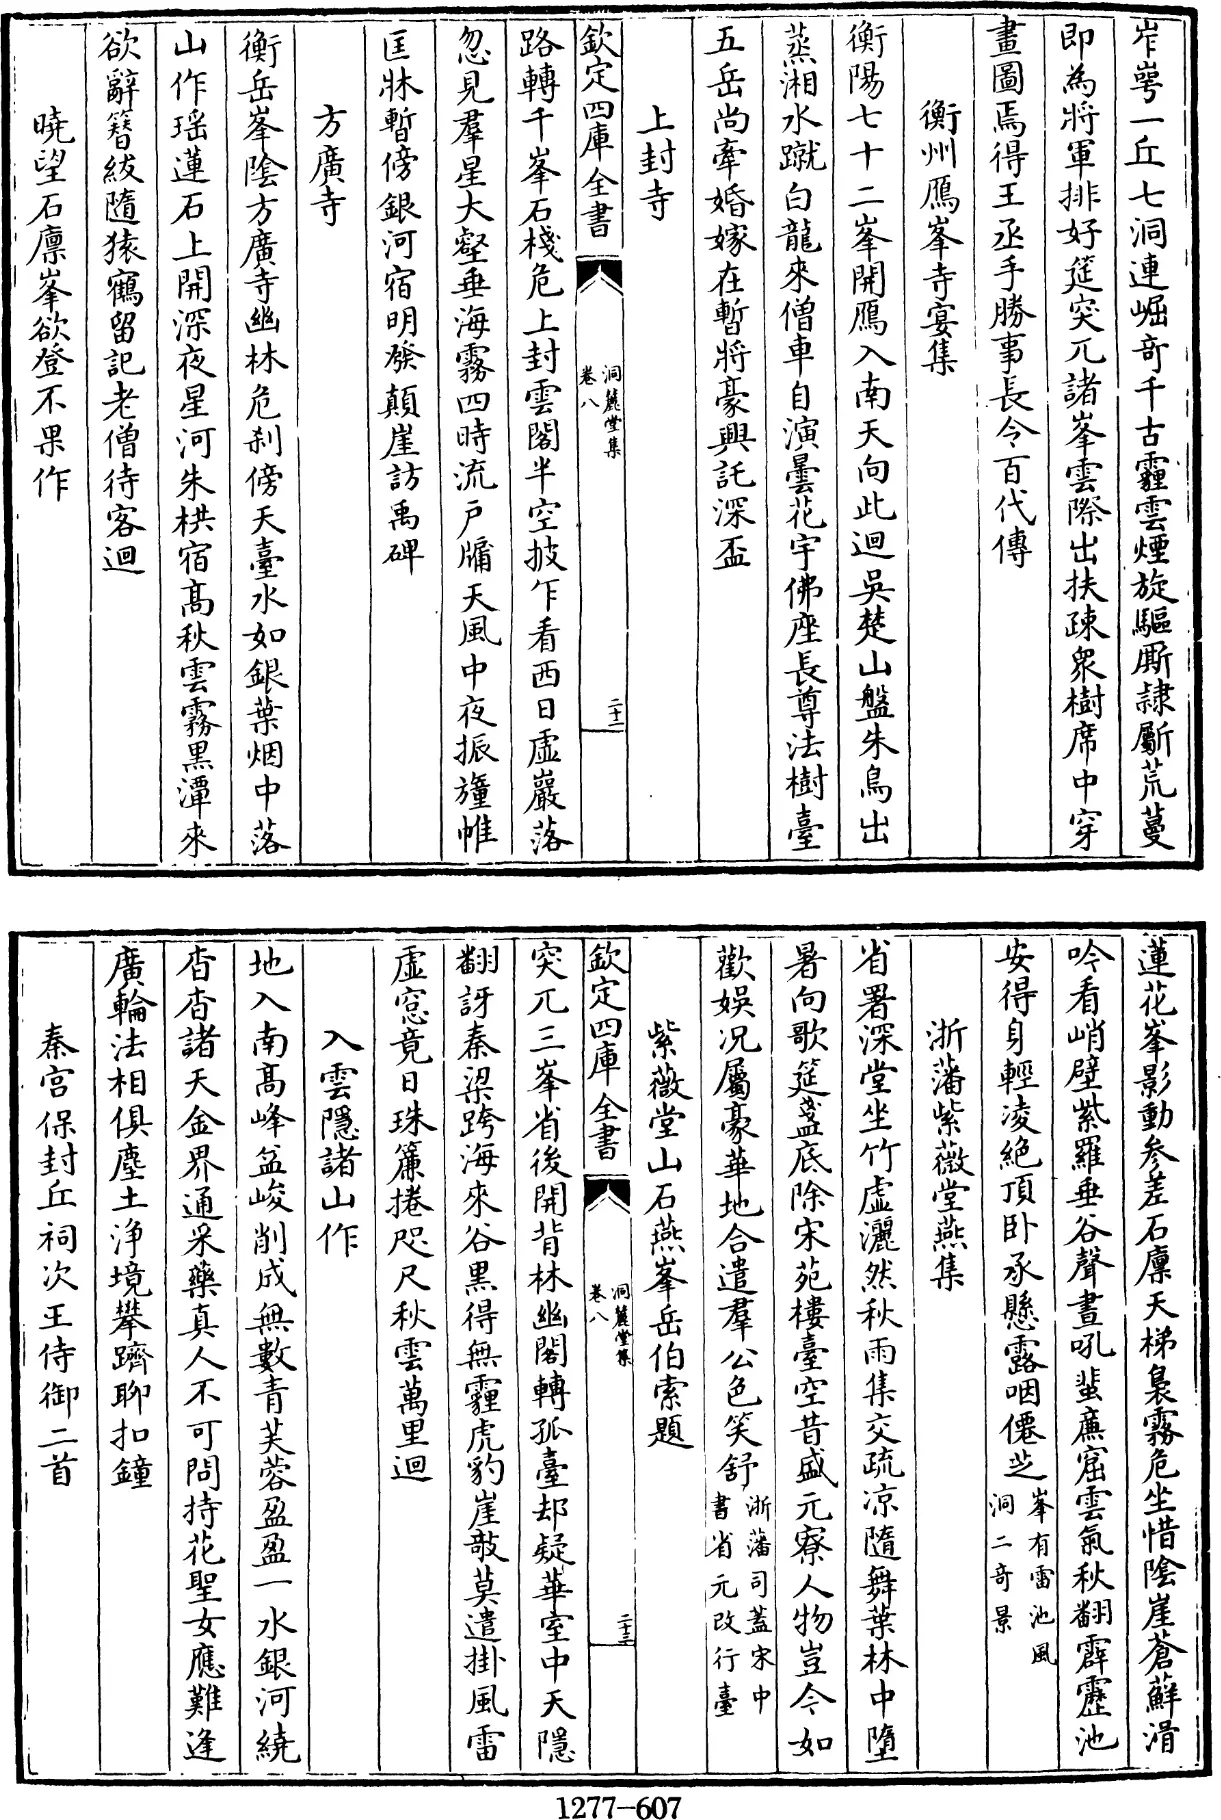 岝崿一丘七洞連崛奇千古霾雲煙旋驅厮隷斸荒蔓
即為將軍排好筵突兀諸峯雲際出扶疎衆樹席中穿
畫圖焉得王丞手勝事長令百代傳
衡州鴈峯寺宴集
衡陽七十二峯開鴈入南天向此迴吳楚山盤朱鳥出
蒸湘水蹴白龍來僧車自演曇花宇佛座長尊法樹臺
五岳尚牽婚嫁在暫將豪興託深盃
上封寺
欽定四庫全書
洞麓堂集
卷八
二十二
路轉千峯石棧危上封雲閣半空披乍看西日虛巖落
忽見羣星大壑垂海霧四時流戶牖天風中夜振旛帷
匡牀暫傍銀河宿明發顛崖訪禹碑
方廣寺
衡岳峯陰方廣寺幽林危刹傍天臺水如銀葉烟中落
山作瑤蓮石上開深夜星河朱栱宿髙秋雲霧黒潭來
欲辭簪紱隨猿鶴留記老僧待客迴
曉望石廪峯欲登不果作
蓮花峯影動参差石廪天梯裊霧危坐惜陰崖蒼蘚滑
吟看峭壁紫羅垂谷聲晝吼蜚廉窟雲氣秋翻霹靂池
安得身輕凌絶頂卧承懸露咽僊芝
峯有雷池風
洞二奇景
浙藩紫薇堂燕集
省署深堂坐竹虛灑然秋雨集交疏凉隨舞葉林中墮
暑向歌筵盞底除宋苑樓臺空昔盛元寮人物豈今如
歡娛况屬豪華地合遣羣公色笑舒
浙藩司蓋宋中
書省元改行臺
紫薇堂山石燕峯岳伯索題
欽定四庫全書
洞麓堂集
卷八
二十三
突兀三峯省後開背林幽閣轉孤臺却疑華室中天隱
翻訝秦梁跨海來谷黒得無霾虎豹崖敧莫遣掛風雷
虛窓竟日珠簾捲咫尺秋雲萬里迴
入雲隱諸山作
地入南髙峰並峻削成無數青芙蓉盈盈一水銀河繞
杳杳諸天金界通采藥真人不可問持花聖女應難逢
廣輪法相俱塵土淨境攀躋聊扣鐘
秦宫保封丘祠次王侍御二首
1277-607